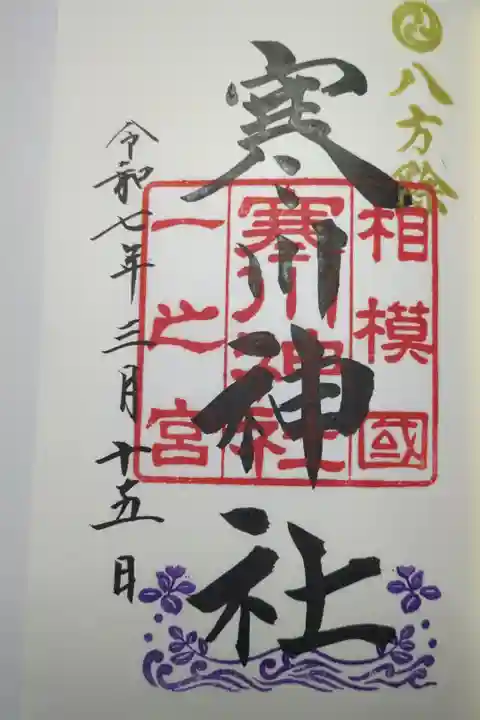 八方除
寒川神社
相模國
寒川神社
一之宮
令和七年三月十五日